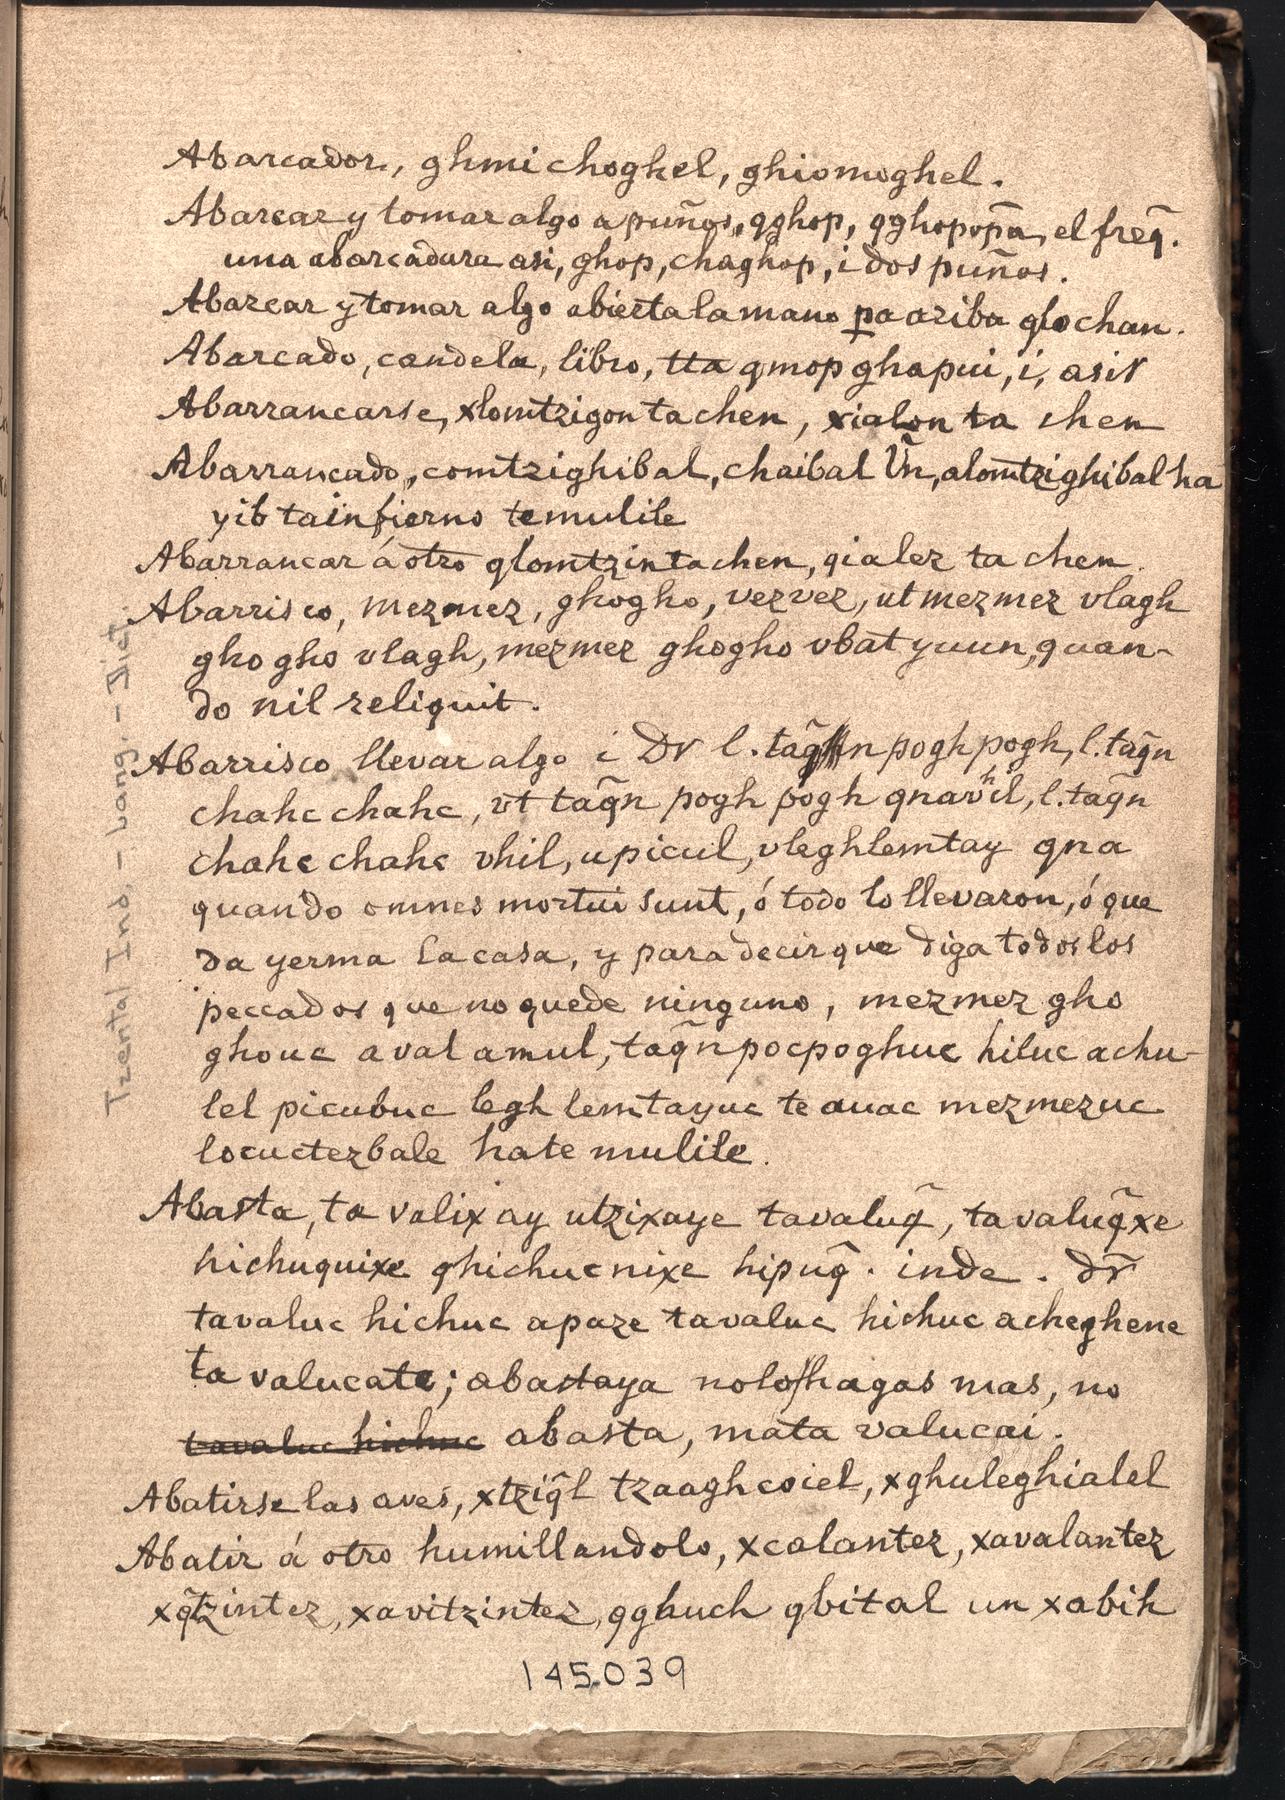 Abarcador, ghmi choghel, ghiomoghel.
Abarcar y tomar algo a puños, qghop, qghopopa͂, el freq̃.
una abarcadura asi, ghop, chaghop, i dos puños.
Abarcar y tomar algo abierta la mano pa ariba glochan.
Abarcado, candela, libro, tta qmop ghapui, i, asir
Abarrancarse, xlomtzigon ta chen, xialon ta chen
Abarrancado, comtzighibal, chaibal Vñ, alomtzighibal ha
yib ta infierno te mulile
Abarrancar á otro qlomtzin ta chen, qialez ta chen.
Abarrisco, mezmez, ghogho, vezvez, ut mezmez vlagh
gho gho vlagh, mezmez ghogho vbat yuun, quan-
do nil reliquit.
Abarrisco llevar algo i Dr l. taq̃n pogh pogh, l. taq̃n
chahc chahc, vt taq̃n pogh pogh qnavhil, l. taq̃n
chahc chahc vhil, upicul, vleghlemtay qna
quando omnes mortui sunt, ó todo lo llevaron, ó que
da yerma la casa, y para decir que diga todos los
peccados que no quede ninguno, mezmez gho
ghouc aval amul, taq̃n pocpoghuc hiluc achu-
lel picubuc legh lemtayuc te auac mezmezuc
locuctezbale hate mulile.
Abasta, ta valix ay utzixaye tavaluq̃, tavaluq̃xe
hichuquixe qhichucnixe hipuq̃. inde. dr̃
tavaluc hichuc apaze tavaluc hichuc acheghene
ta valucate; abastaya nolo hagas mas, no
tavaluc hichuc abasta, mata valucai.
Abatirse las aves, xtziq̃l tzaaghcoiel, xghuleghialel
Abatir á otro humillandolo, xcalantez, xavalantez
xq̃tzintez, xavitzintez, qghuch qbital un xabih
145.039
Tzental Ind. - Lang. - Dict.